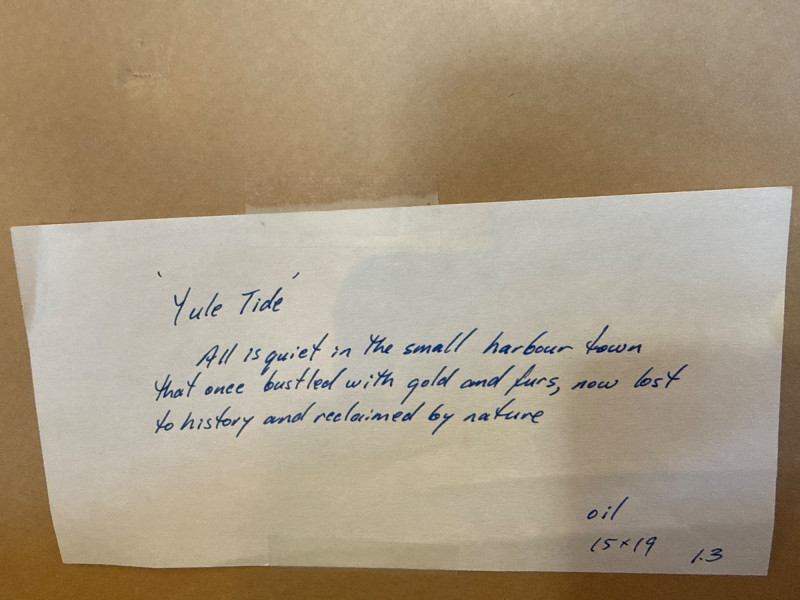 'Yule Tide'
All is quiet in the small harbour town
that once bustled with gold and furs, now lost
to history and reclaimed by nature
oil
15×19
1.3